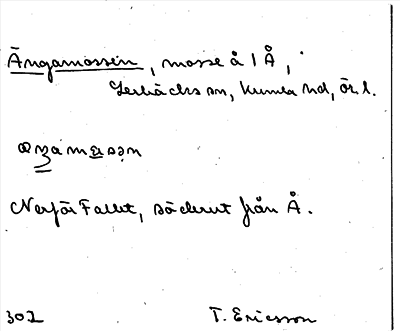 Ängamossen, mosse å 1 Å,
Lerbäcks sn, Kumla hd, Ör. l.
æŋamɷsən
Nerför Fallet, söderut från Å.
302 T. Ericsson